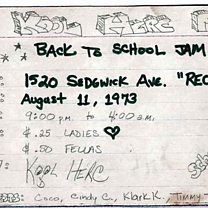 KOOL HERC
BACK TO SCHOOL JAM
1520 SEDGWICK AVE. "REC
August 11, 1973
9:00 p.m. to 4:00 a.m.
$.25 LADIES ♡
$.50 FELLAS
KOOL HERC
Coco, Cindy C., Klark K., Timmy